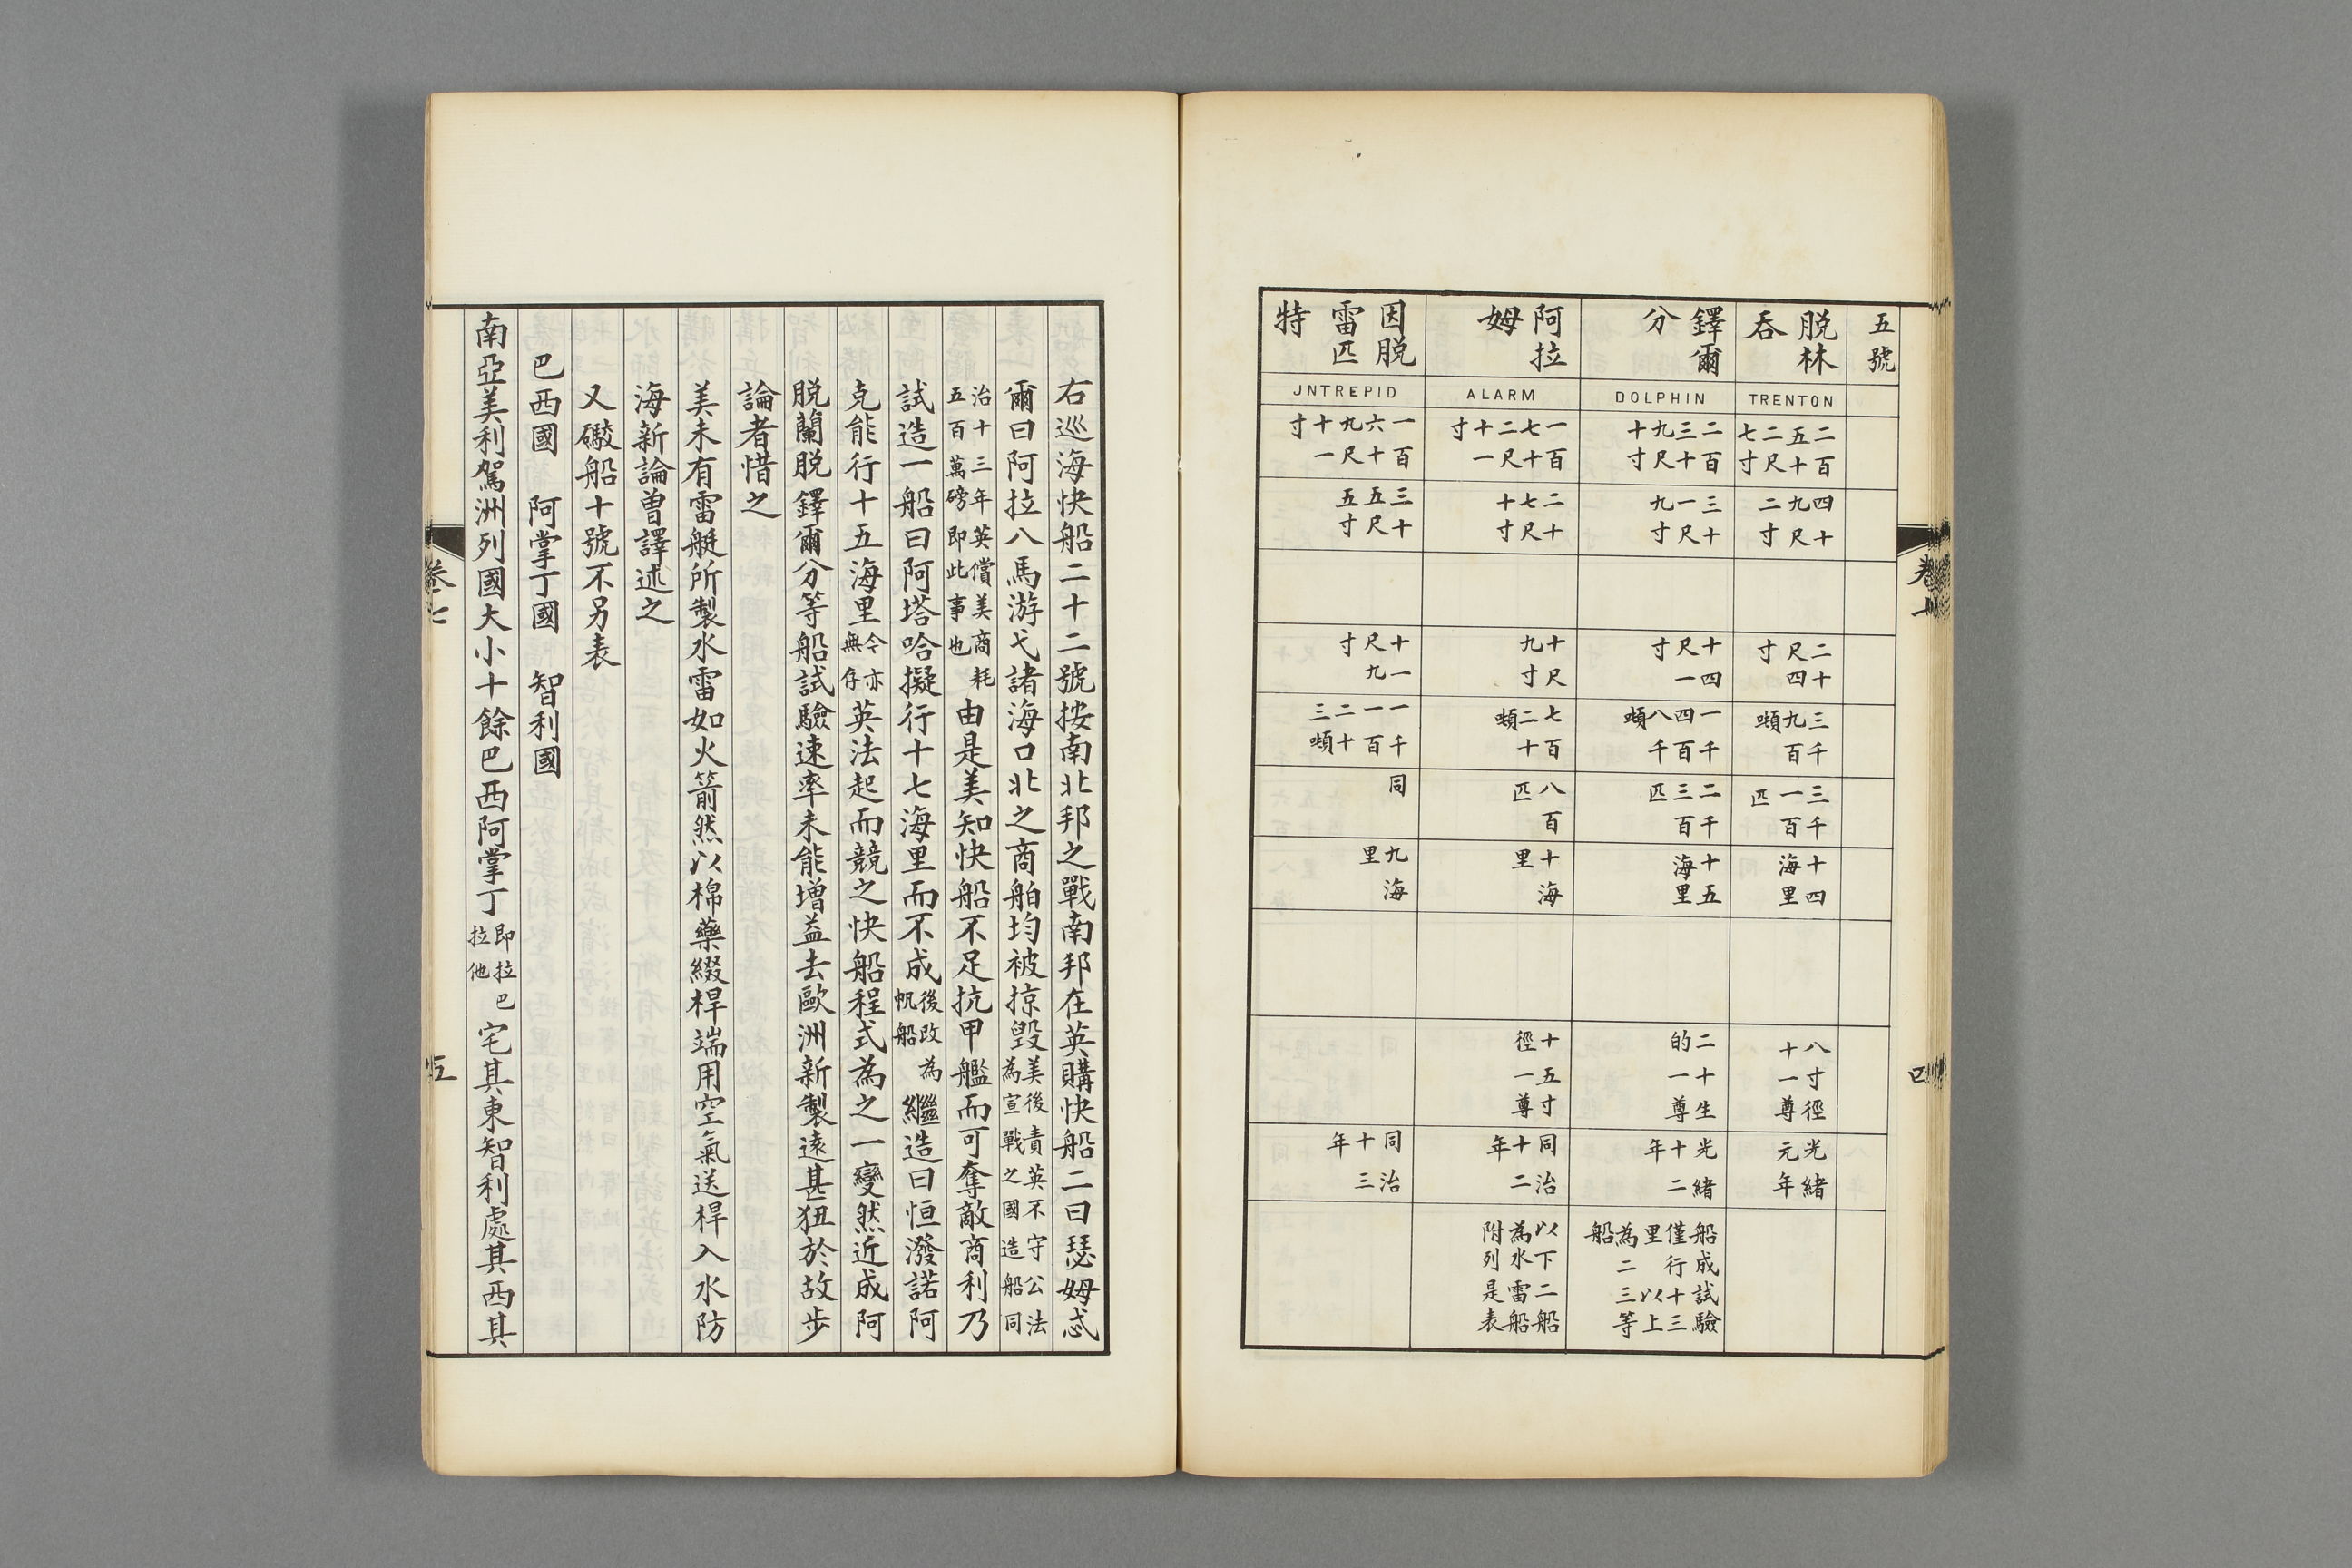 五號
脫林吞
TRENTON
二百五十二尺七寸
四十九尺二寸
二十尺四寸
三千九百噸
三千一百匹
十四海里
八寸徑十一尊
光緒元年
鐸爾分
DOLPHIN
二百三十九尺十寸
三十一尺九寸
十四尺一寸
一千四百八千噸
二千三百匹
十五海里
二十生的一尊
光緒十二年
船成試驗僅行十三里以上為二三等船
阿拉姆
ALARM
一百七十二尺十一寸
二十七尺十寸
十尺九寸
七百二十噸
八百匹
十海里
十五寸徑一尊
同治十二年
以下二船為水雷船附列是表
因脫雷匹特
JNTREPID
一百六十九尺十一寸
三十五尺五寸
十一尺九寸
一千一百二十三噸
同
九海里
同治十三年
卷七
四
右巡海快船二十二號按南北邦之戰南邦在英購快船二曰瑟姆忒
爾曰阿拉八馬游弋諸海口北之商舶均被掠毀美後責英不守公法為宣戰之國造船同
治十三年英償美商耗五百萬磅即此事也由是美知快船不足抗甲艦而可奪敵商利乃
試造一船曰阿塔哈擬行十七海里而不成後改為帆船繼造曰恒潑諾阿
克能行十五海里今亦無存英法起而競之快船程式為之一變然近成阿
脫蘭脫鐸爾分等船試驗速率未能增益去歐洲新製遠甚狃於故步
論者惜之
美未有雷艇所製水雷如火箭然以棉藥綴桿端用空氣送桿入水防
海新論曾譯述之
又礮船十號不另表
巴西國 阿掌丁國 智利國
南亞美利駕洲列國大小十餘巴西阿掌丁即拉巴拉他宅其東智利處其西其
卷七
五